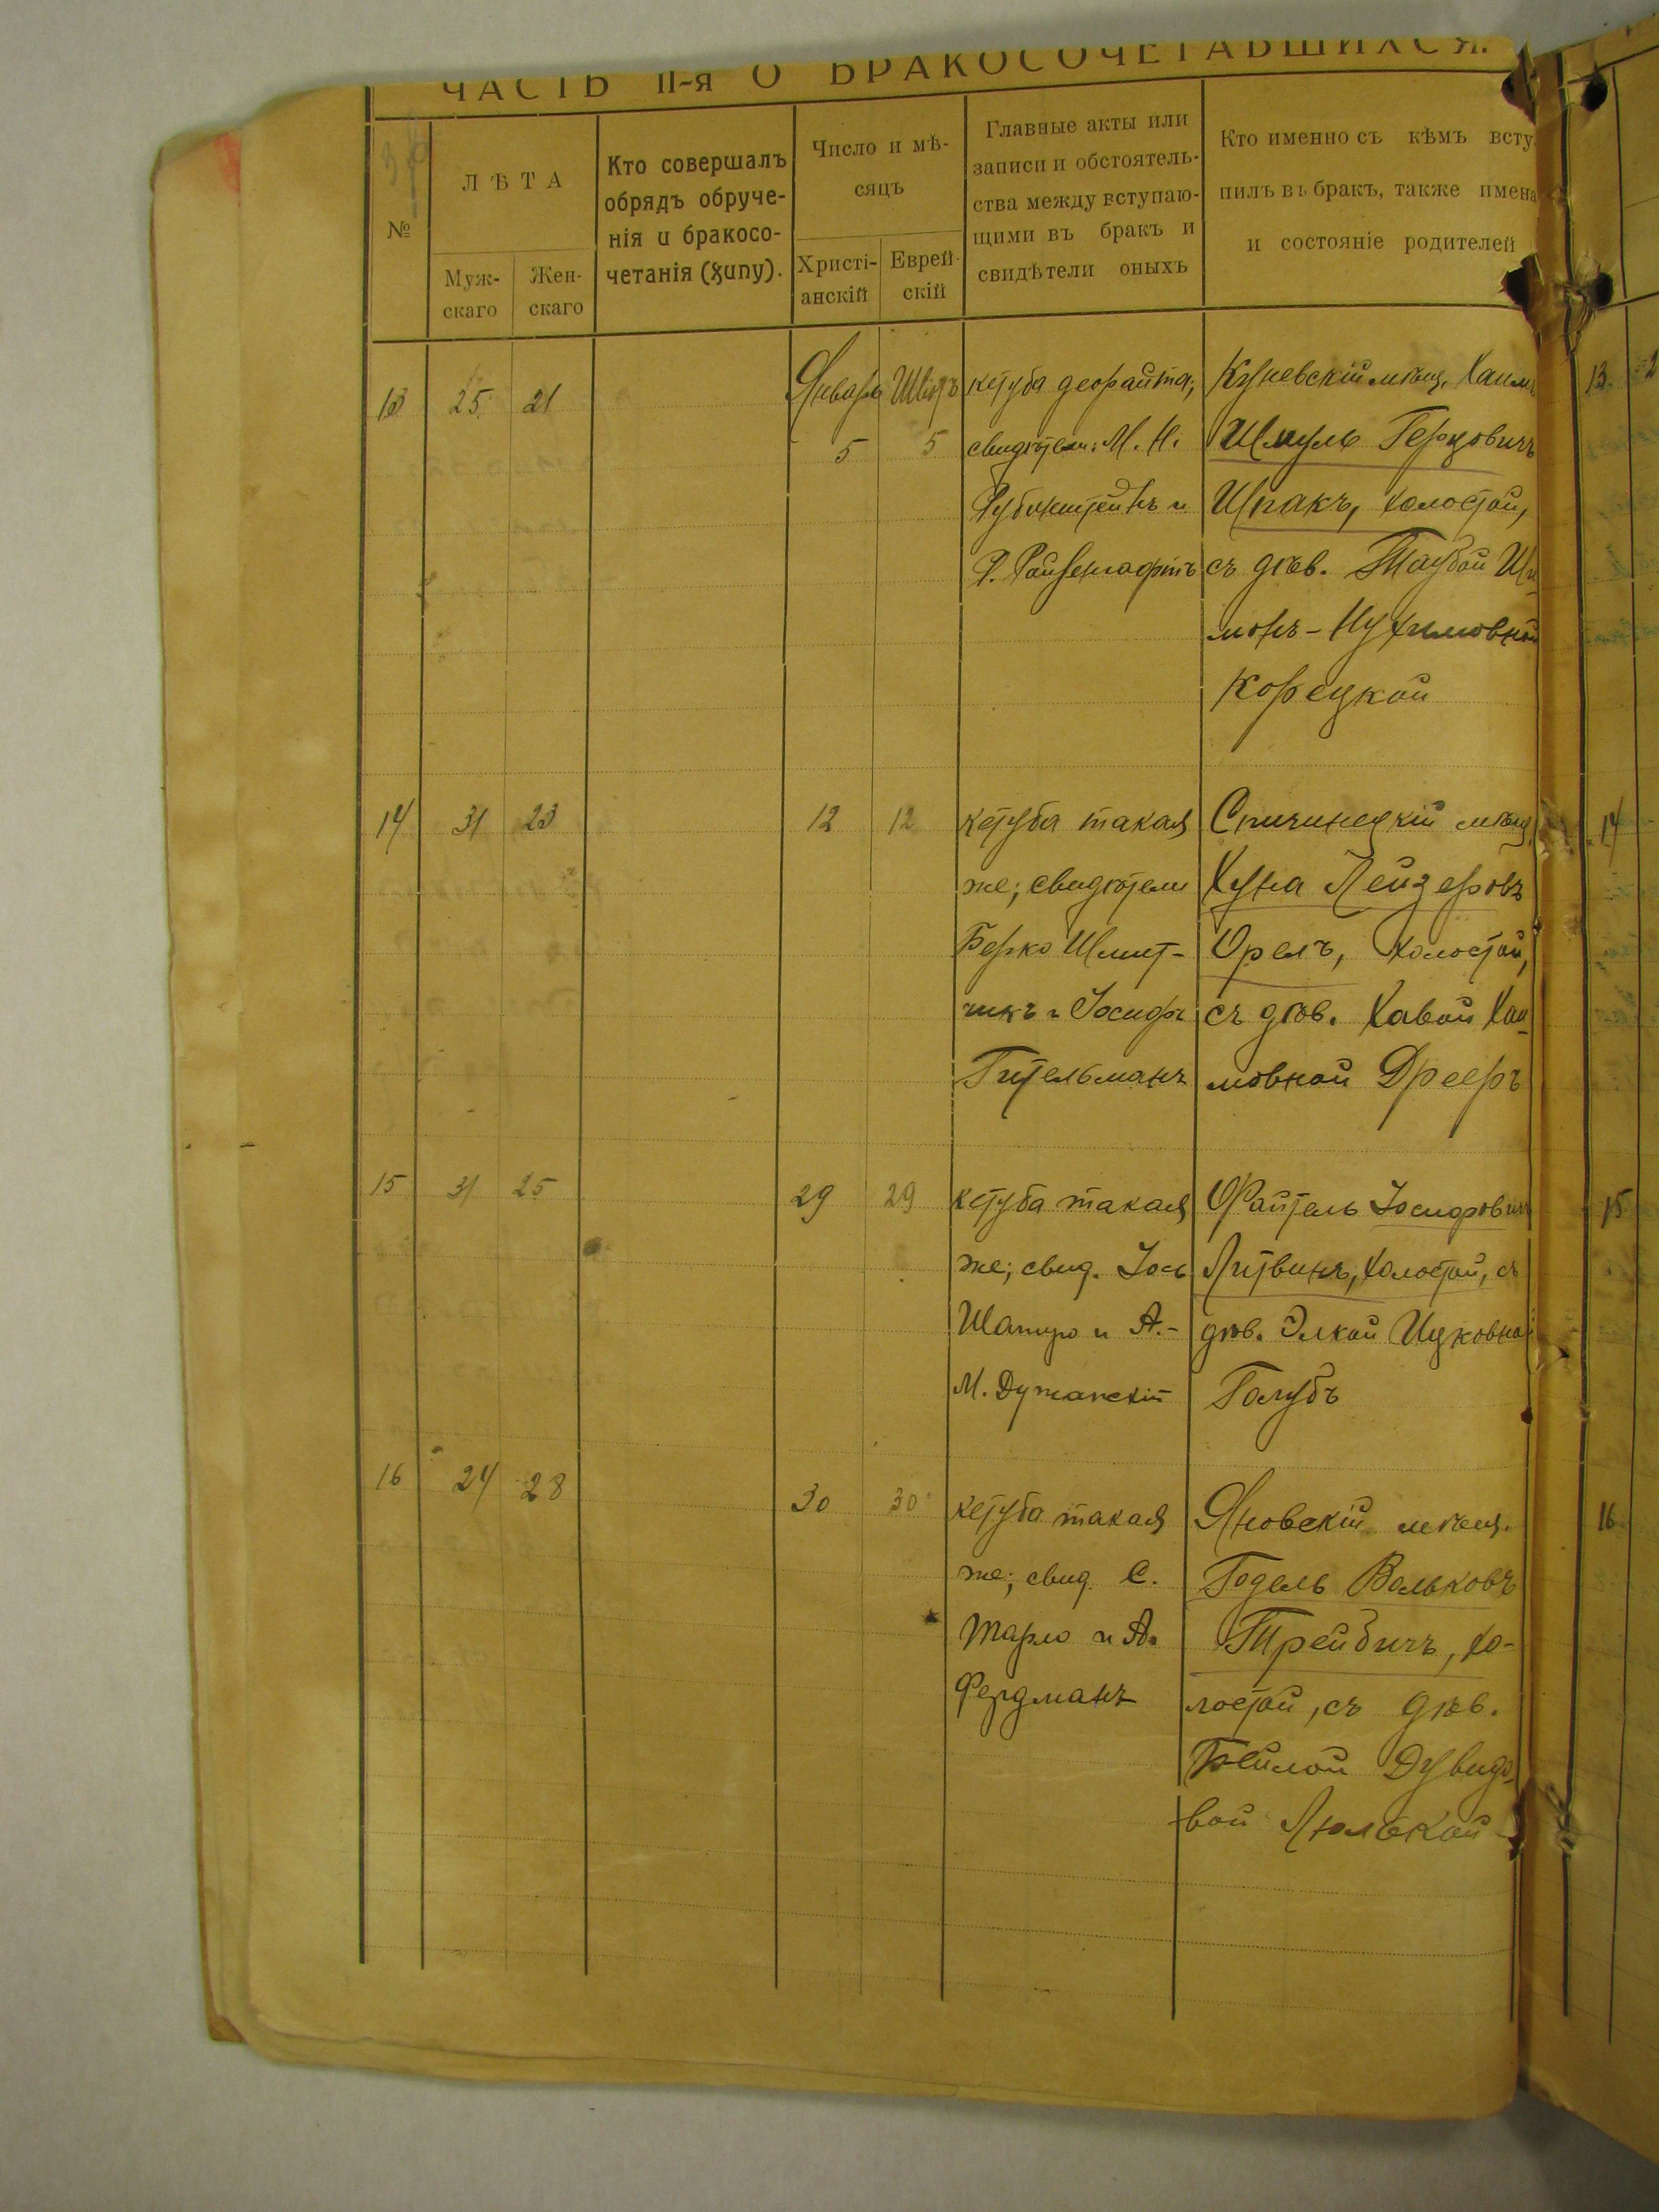 ЧАСТЬ II-я О БРАКОСОЧЕТАВШИХСЯ.
№
ЛѢТА
Муж-
скаго
Жен-
скаго
Кто совершалъ
обрядъ обруче-
нія и бракосо-
четанія (хупу).
Число и мѣ-
сяцъ
Христі-
анскій
Еврей-
скій
Главные акты или
записи и обстоятель-
ства между вступаю-
щими въ бракъ и
свидѣтели оныхъ
Кто именно съ кѣмъ всту
пилъ въ бракъ, также имена
и состояніе родителей
13 25 21
Январь Шватъ
5 5
кетуба деорайта;
свидѣтели: М. Н.
Рубинштейнъ и
Р. Райзенгафтъ
Куневскій мѣщ. Хаимъ
Шмуль Герцовичъ
Шпакъ, холостой,
съ дѣв. Таубой Ши-
монъ-Нухимовной
Корецкой
13
14 31 23 12 12
кетуба такая
же; свидѣтели
Берко Шмит-
чикъ и Іосифъ
Гительманъ
Спичинецкій мѣщ.
Хуна Лейзеровъ
Орелъ, холостой,
съ дѣв. Хавой Хаи-
мовной Дрееръ
14
15 31 25 29 29
кетуба такая
же; свид. Іось
Шапиро и А.-
М.
Файтель Іосифовичъ
Литвинъ, холостой, съ
дѣв. Элкой Ицковной
Голубъ
15
16 24 28 30 30
кетуба такая
же; свид. С.
Тарло и А.
Фердманъ
Яновскій мѣщ.
Годель Вольковъ
Трейбичъ, хо-
лостой, съ дѣв.
Бейлой Дувидо-
вой Люлькой
16